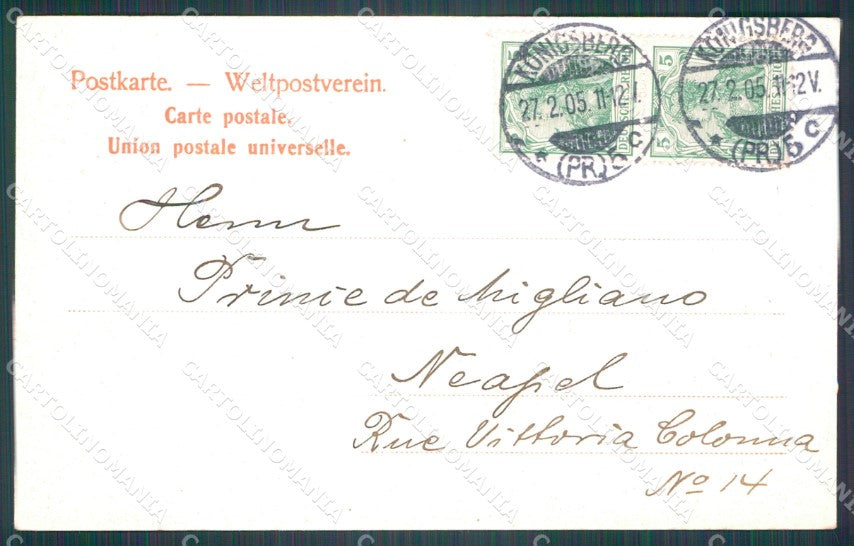 Postkarte. — Weltpostverein.
Carte postale.
Union postale universelle.
KÖNIGSBERG
27.2.05.11-12V.
(PR.)5c
KÖNIGSBERG
27.2.05.11-12V.
(PR.)5c
5
5
Herrn
Prince de Migliano
Neapel
Rue Vittoria Colonna
No 14
CARTOLINOMANIA